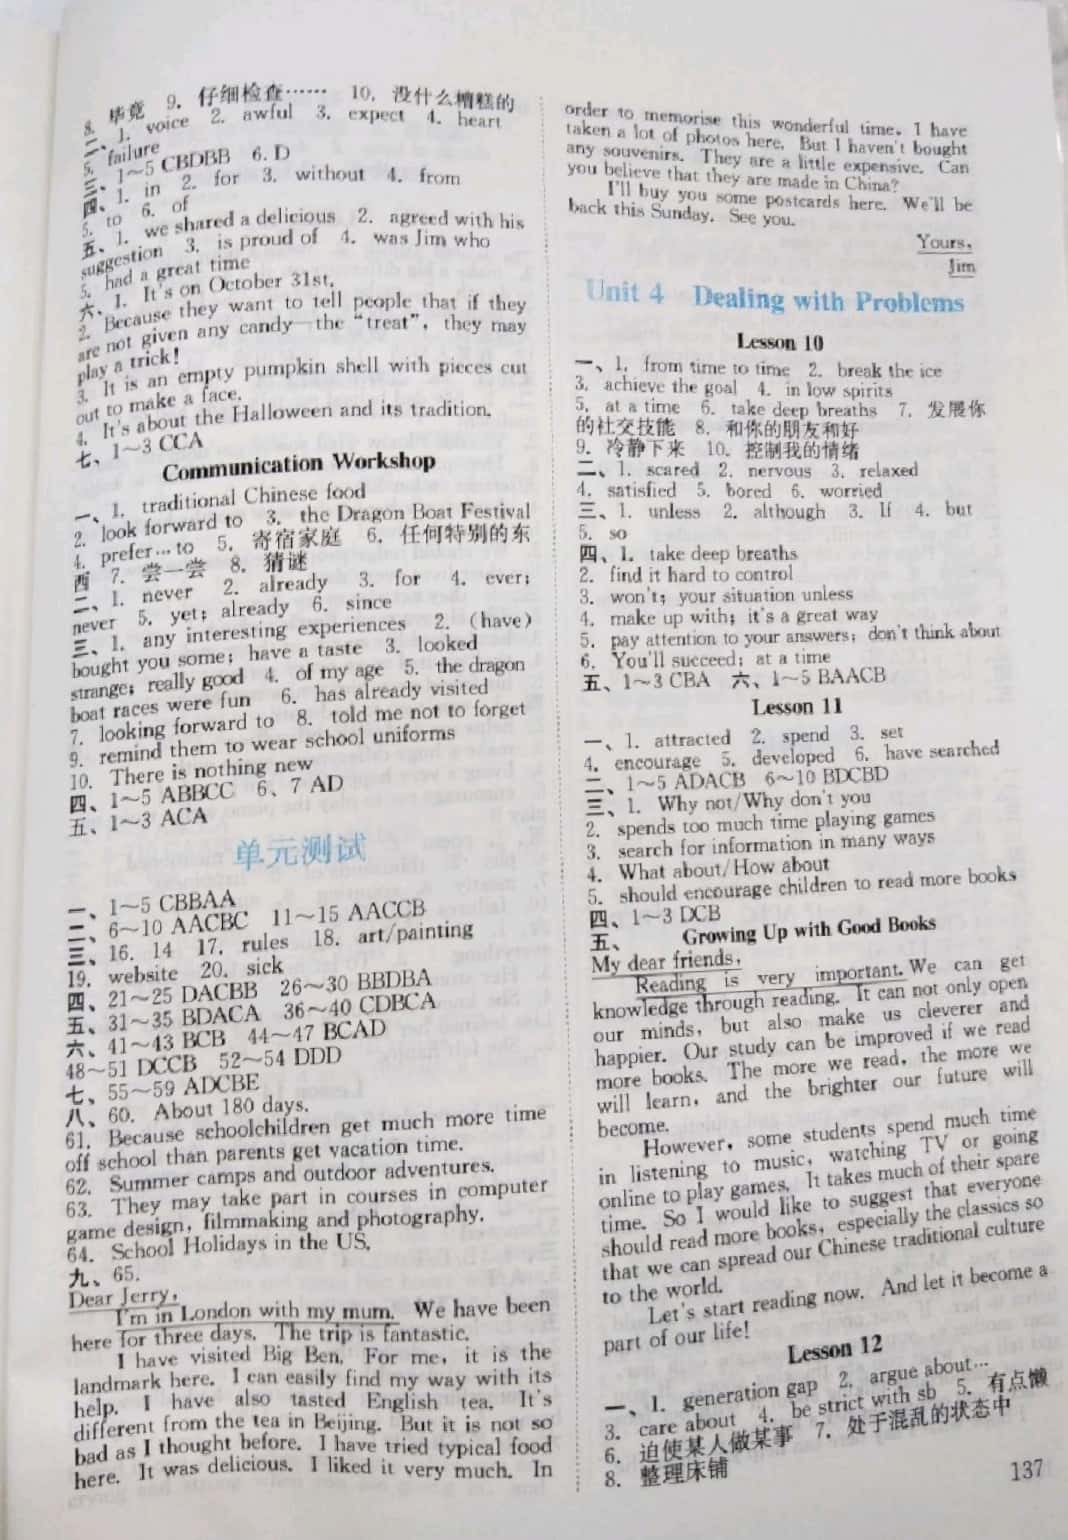 8. 毕竟 9. 仔细检查…… 10. 没什么糟糕的
二、1. voice 2. awful 3. expect 4. heart
5. failure
三、1～5 CBDBB 6. D
四、1. in 2. for 3. without 4. from
5. to 6. of
五、1. we shared a delicious 2. agreed with his
suggestion 3. is proud of 4. was Jim who
5. had a great time
六、1. It's on October 31st.
2. Because they want to tell people that if they
are not given any candy—the “treat”, they may
play a trick!
3. It is an empty pumpkin shell with pieces cut
out to make a face.
4. It's about the Halloween and its tradition.
七、1～3 CCA
Communication Workshop
一、1. traditional Chinese food
2. look forward to 3. the Dragon Boat Festival
4. prefer…to 5. 寄宿家庭 6. 任何特别的东
西 7. 尝一尝 8. 猜谜
二、1. never 2. already 3. for 4. ever;
never 5. yet; already 6. since
三、1. any interesting experiences 2. (have)
bought you some; have a taste 3. looked
strange; really good 4. of my age 5. the dragon
boat races were fun 6. has already visited
7. looking forward to 8. told me not to forget
9. remind them to wear school uniforms
10. There is nothing new
四、1～5 ABBCC 6、7 AD
五、1～3 ACA
单元测试
一、1～5 CBBAA
二、6～10 AACBC 11～15 AACCB
三、16. 14 17. rules 18. art/painting
19. website 20. sick
四、21～25 DACBB 26～30 BBDBA
五、31～35 BDACA 36～40 CDBCA
六、41～43 BCB 44～47 BCAD
48～51 DCCB 52～54 DDD
七、55～59 ADCBE
八、60. About 180 days.
61. Because schoolchildren get much more time
off school than parents get vacation time.
62. Summer camps and outdoor adventures.
63. They may take part in courses in computer
game design, filmmaking and photography.
64. School Holidays in the US.
九、65.
Dear Jerry,
I'm in London with my mum. We have been
here for three days. The trip is fantastic.
I have visited Big Ben. For me, it is the
landmark here. I can easily find my way with its
help. I have also tasted English tea. It's
different from the tea in Beijing. But it is not so
bad as I thought before. I have tried typical food
here. It was delicious. I liked it very much. In
order to memorise this wonderful time, I have
taken a lot of photos here. But I haven't bought
any souvenirs. They are a little expensive. Can
you believe that they are made in China?
I'll buy you some postcards here. We'll be
back this Sunday. See you.
Yours,
Jim
Unit 4 Dealing with Problems
Lesson 10
一、1. from time to time 2. break the ice
3. achieve the goal 4. in low spirits
5. at a time 6. take deep breaths 7. 发展你
的社交技能 8. 和你的朋友和好
9. 冷静下来 10. 控制我的情绪
二、1. scared 2. nervous 3. relaxed
4. satisfied 5. bored 6. worried
三、1. unless 2. although 3. If 4. but
5. so
四、1. take deep breaths
2. find it hard to control
3. won't; your situation unless
4. make up with; it's a great way
5. pay attention to your answers; don't think about
6. You'll succeed; at a time
五、1～3 CBA 六、1～5 BAACB
Lesson 11
一、1. attracted 2. spend 3. set
4. encourage 5. developed 6. have searched
二、1～5 ADACB 6～10 BDCBD
三、1. Why not/Why don't you
2. spends too much time playing games
3. search for information in many ways
4. What about/How about
5. should encourage children to read more books
四、1～3 DCB
五、 Growing Up with Good Books
My dear friends,
Reading is very important. We can get
knowledge through reading. It can not only open
our minds, but also make us cleverer and
happier. Our study can be improved if we read
more books. The more we read, the more we
will learn, and the brighter our future will
become.
However, some students spend much time
in listening to music, watching TV or going
online to play games. It takes much of their spare
time. So I would like to suggest that everyone
should read more books, especially the classics so
that we can spread our Chinese traditional culture
to the world.
Let's start reading now. And let it become a
part of our life!
Lesson 12
一、1. generation gap 2. argue about…
3. care about 4. be strict with sb 5. 有点懒
6. 迫使某人做某事 7. 处于混乱的状态中
8. 整理床铺
137